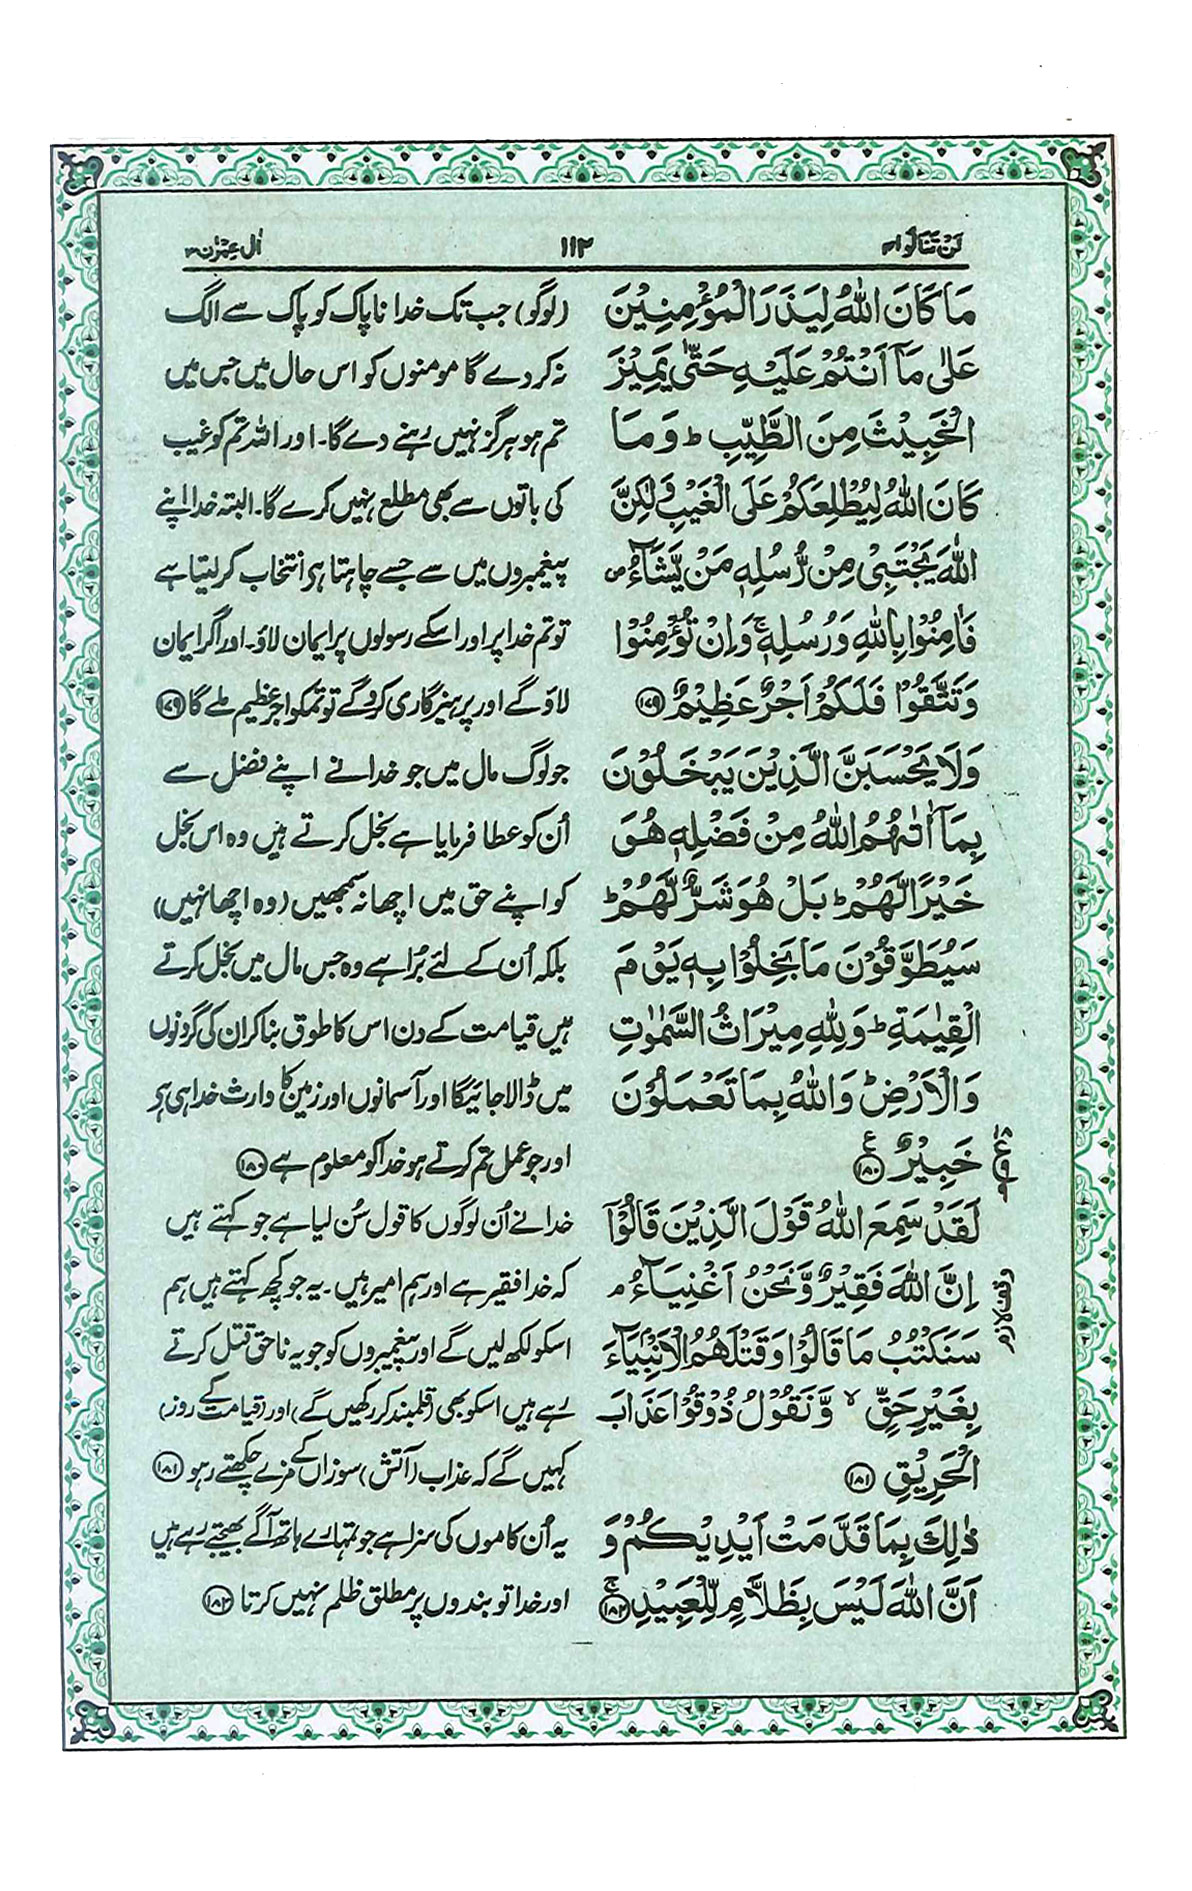 لَنْ تَنَالُوا ۴ ۱۱۲ اٰل عِمْرٰن ۳
مَا كَانَ اللّٰهُ لِيَذَرَ الْمُؤْمِنِيْنَ (لوگو) جب تک خدا ناپاک کو پاک سے الگ
عَلٰى مَآ اَنْتُمْ عَلَيْهِ حَتّٰى يَمِيْزَ نہ کر دے گا مومنوں کو اس حال میں جس میں
الْخَبِيْثَ مِنَ الطَّيِّبِ ؕ وَمَا تم ہو ہرگز نہیں رہنے دے گا۔ اور اللہ تم کو غیب
كَانَ اللّٰهُ لِيُطْلِعَكُمْ عَلَى الْغَيْبِ وَلٰكِنَّ کی باتوں سے بھی مطلع نہیں کرے گا۔ البتہ خدا اپنے
اللّٰهَ يَجْتَبِىْ مِنْ رُّسُلِهٖ مَنْ يَّشَآءُ ۪ پیغمبروں میں سے جسے چاہتا ہے انتخاب کر لیتا ہے
فَاٰمِنُوْا بِاللّٰهِ وَرُسُلِهٖ ۚ وَاِنْ تُؤْمِنُوْا تو تم خدا پر اور اسکے رسولوں پر ایمان لاؤ۔ اور اگر ایمان
وَتَتَّقُوْا فَلَكُمْ اَجْرٌ عَظِيْمٌ ﴿۱۷۹﴾ لاؤ گے اور پرہیزگاری کرو گے تو تمکو اجر عظیم ملے گا ﴿۱۷۹﴾
وَلَا يَحْسَبَنَّ الَّذِيْنَ يَبْخَلُوْنَ جو لوگ مال میں جو خدا نے اپنے فضل سے
بِمَآ اٰتٰهُمُ اللّٰهُ مِنْ فَضْلِهٖ هُوَ اُن کو عطا فرمایا ہے بخل کرتے ہیں وہ اس بخل
خَيْرًا لَّهُمْ ؕ بَلْ هُوَ شَرٌّ لَّهُمْ ؕ کو اپنے حق میں اچھا نہ سمجھیں (وہ اچھا نہیں)
سَيُطَوَّقُوْنَ مَا بَخِلُوْا بِهٖ يَوْمَ بلکہ اُن کے لئے بُرا ہے وہ جس مال میں بخل کرتے
الْقِيٰمَةِ ؕ وَلِلّٰهِ مِيْرَاثُ السَّمٰوٰتِ ہیں قیامت کے دن اس کا طوق بنا کر ان کی گردنوں
وَالْاَرْضِ ؕ وَاللّٰهُ بِمَا تَعْمَلُوْنَ میں ڈالا جائیگا اور آسمانوں اور زمین کا وارث خدا ہی ہے
خَبِيْرٌ ﴿۱۸۰﴾ ع اور جو عمل تم کرتے ہو خدا کو معلوم ہے ﴿۱۸۰﴾
لَقَدْ سَمِعَ اللّٰهُ قَوْلَ الَّذِيْنَ قَالُوْٓا خدا نے اُن لوگوں کا قول سُن لیا ہے جو کہتے ہیں
اِنَّ اللّٰهَ فَقِيْرٌ وَّنَحْنُ اَغْنِيَآءُ ۘ کہ خدا فقیر ہے اور ہم امیر ہیں۔ یہ جو کچھ کہتے ہیں ہم
سَنَكْتُبُ مَا قَالُوْا وَقَتْلَهُمُ الْاَنْۢبِيَآءَ اسکو لکھ لیں گے اور پیغمبروں کو جو یہ ناحق قتل کرتے
بِغَيْرِ حَقٍّ ۙ وَّنَقُوْلُ ذُوْقُوْا عَذَابَ رہے ہیں اسکو بھی (قلمبند کر رکھیں گے) اور (قیامت کے روز)
الْحَرِيْقِ ﴿۱۸۱﴾ کہیں گے کہ عذاب (آتش) سوزاں کے مزے چکھتے رہو ﴿۱۸۱﴾
ذٰلِكَ بِمَا قَدَّمَتْ اَيْدِيْكُمْ وَ یہ اُن کاموں کی سزا ہے جو تمہارے ہاتھ آگے بھیجتے رہے ہیں
اَنَّ اللّٰهَ لَيْسَ بِظَلَّامٍ لِّلْعَبِيْدِ ۚ﴿۱۸۲﴾ اور خدا تو بندوں پر مطلق ظلم نہیں کرتا ﴿۱۸۲﴾